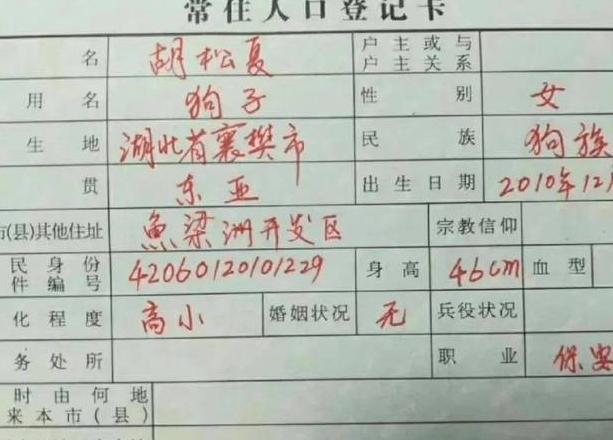 常住人口登记卡
名 胡松夏 户主或与户主关系
用名 狗子 性别 女
生地 湖北省襄樊市 民族 狗族
贯 东亚 出生日期 2010年12
市(县)其他住址 魚梁洲开发区 宗教信仰
民身份件编号 42060120101229 身高 46cm 血型
化程度 高小 婚姻状况 无 兵役状况
务处所 职业 保安
时由何地来本市(县)